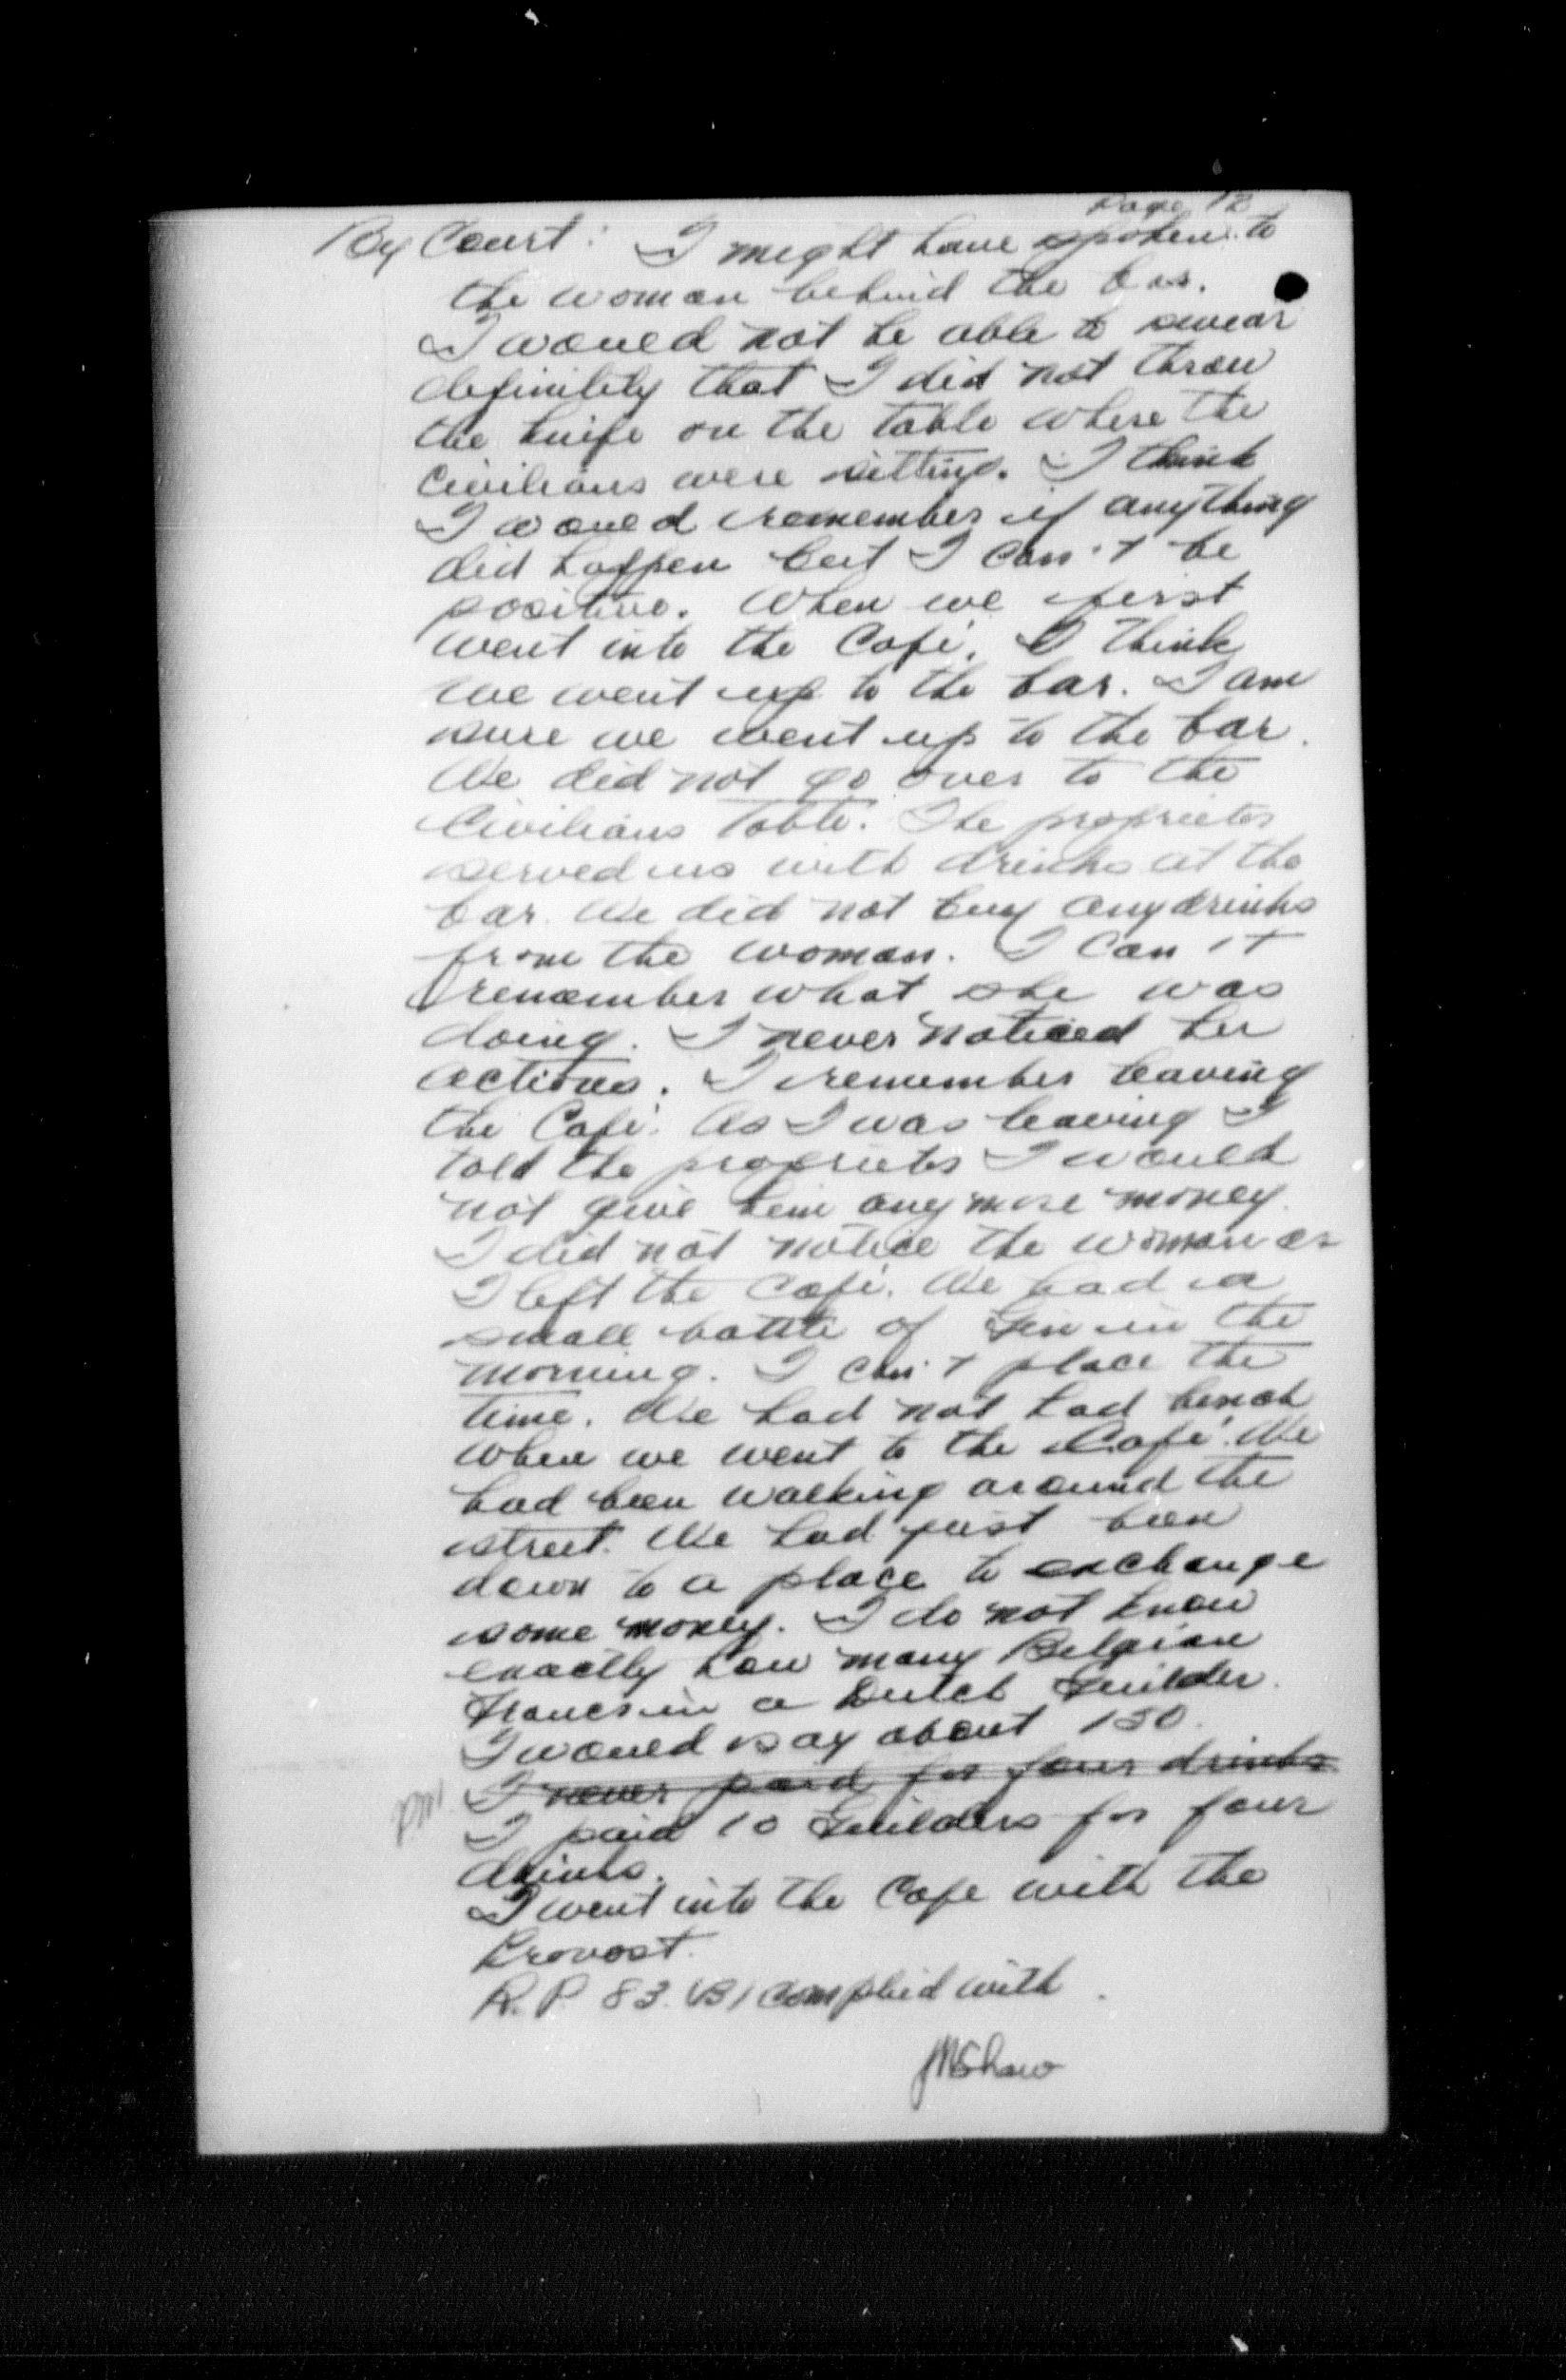 Page 12
By Court: I might have spoken to
the woman behind the bar.
I would not be able to swear
definitely that I did not throw
the knife on the table where the
Civilians were sitting. I think
I would remember if anything
did happen but I can't be
positive. When we first
went into the Café, I think
we went up to the bar. I am
sure we went up to the bar.
We did not go over to the
Civilians table. The proprietor
served us with drinks at the
bar. We did not buy any drinks
from the woman. I can't
remember what she was
doing. I never noticed her
actions. I remember leaving
the Café. As I was leaving I
told the proprietor I would
not give him anymore money.
I did not notice the woman as
I left the Café. We had a
small bottle of Gin in the
morning. I can't place the
time. We had not had lunch
when we went to the Café. We
had been walking around the
street. We had just been
down to a place to exchange
some money. I do not know
exactly how many Belgian
Francs in a Dutch Guilder.
I would say about 150.
I never paid for four drinks
I paid 10 Guilders for four
drinks.
I went into the Cafe with the
Provost.
R.P. 83. (B) complied with.